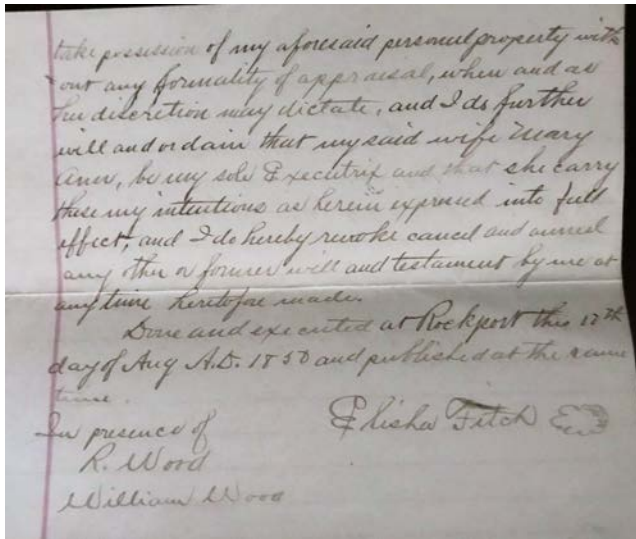 take possession of my aforesaid personal property with
out any formality of appraisal, when and as
her discretion may dictate, and I do further
will and ordain that my said wife Mary
Ann, be my sole Executrix and that she carry
these my intentions as herein expressed into full
effect, and I do hereby revoke cancel and annul
any other or former will and testament by me at
any time heretofore made.
Done and executed at Rockport this 17th
day of Aug A.D. 1850 and published at the same
time.
In presence of
Elisha Fitch
R. Wood
William Wood